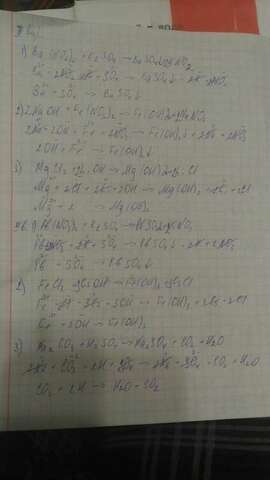 1) Ba(NO₃)₂ + K₂SO₄ → BaSO₄↓ + 2KNO₃
Ba + 2NO₃ + 2K + SO₄ → BaSO₄↓ + 2K + 2NO₃
Ba + SO₄ → BaSO₄↓
2) 2NaOH + Fe(NO₃)₂ → Fe(OH)₂ + 2NaNO₃
2Na + 2OH + Fe + 2NO₃ → Fe(OH)₂↓ + 2Na + 2NO₃
2OH + Fe → Fe(OH)₂↓
3) MgCl₂ + 2KOH → Mg(OH)₂ + 2KCl
Mg + 2Cl + 2K + 2OH → Mg(OH)₂ + 2K + 2Cl
Mg + 2 → Mg(OH)₂
1) Pb(NO₃)₂ + K₂SO₄ → PbSO₄ + 2KNO₃
Pb + 2NO₃ + 2K + SO₄ → PbSO₄↓ + 2K + 2NO₃
Pb + SO₄ → PbSO₄↓
2) FeCl₃ + 3KOH → Fe(OH)₃ + 3KCl
+ 3OH → Fe(OH)₃
3) K₂CO₃ + H₂SO₄ → K₂SO₄ + CO₂ + H₂O
2K + CO₃ + 2H + SO₄ → 2K + SO₄ + CO₂ + H₂O
CO₃ + 2H → H₂O + CO₂